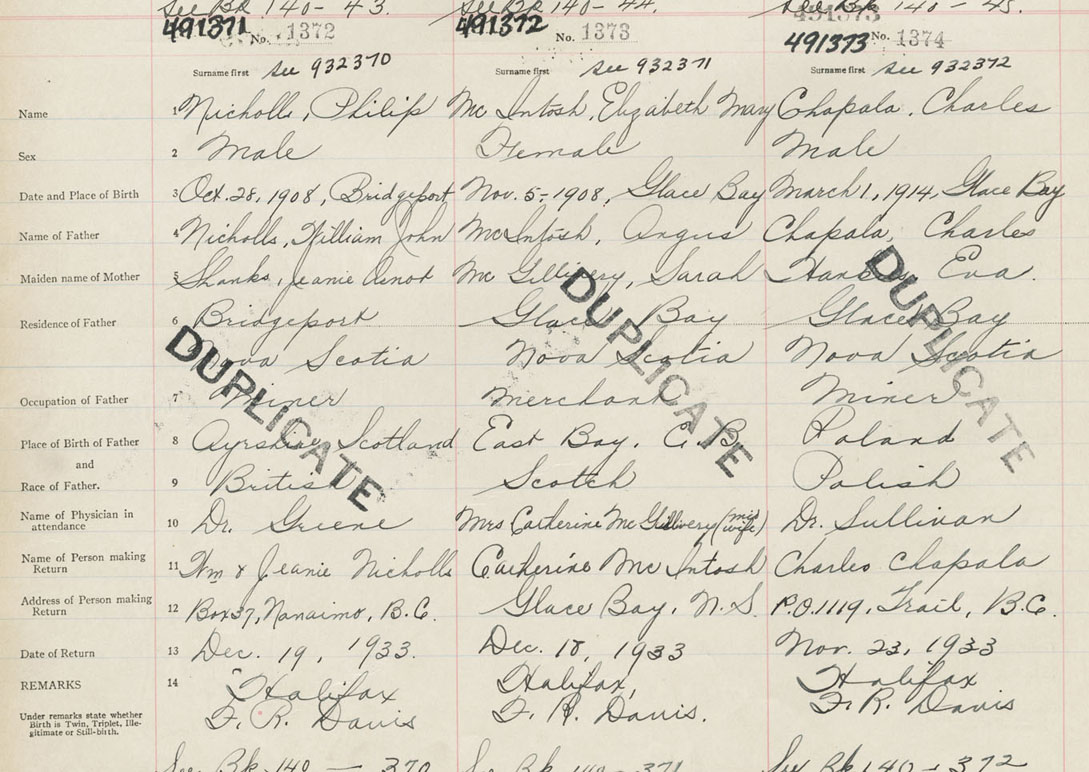 See Bk 140-43. See Bk 140-44. See Bk 140-45.
491371 No. 1372 491372 No. 1373 491373 491373 No. 1374
Surname first See 932370 Surname first See 932371 Surname first See 932372
Name 1 Nicholls, Philip McIntosh, Elizabeth Mary Chapala, Charles
Sex 2 Male Female Male
Date and Place of Birth 3 Oct. 28, 1908, Bridgeport Nov. 5-1908, Glace Bay March 1, 1914, Glace Bay
Name of Father 4 Nicholls, William John McIntosh, Angus Chapala, Charles
Maiden name of Mother 5 Shanks, Jeanie Mc Gillivery, Sarah Eva.
Residence of Father 6 Bridgeport Glace Bay Glace Bay
Nova Scotia Nova Scotia Nova Scotia
DUPLICATE DUPLICATE DUPLICATE
Occupation of Father 7 Miner Merchant Miner
Place of Birth of Father 8 Ayrshire Scotland East Bay, C.B. Poland
and
Race of Father. 9 British Scotch Polish
Name of Physician in
attendance 10 Dr. Greene Mrs Catherine McGillivery (mid wife) Dr. Sullivan
Name of Person making
Return 11 Wm & Jeanie Nicholls Catherine McIntosh Charles Chapala
Address of Person making
Return 12 Box 37, Nanaimo, B.C. Glace Bay, N.S. P.O. 1119, Trail, B.C.
Date of Return 13 Dec. 19, 1933. Dec. 18, 1933 Nov. 23, 1933
REMARKS 14 Halifax Halifax, Halifax
F. R. Davis F. R. Davis. F. R. Davis
Under remarks state whether
Birth is Twin, Triplet, Ille-
gitimate or Still-birth.
See Bk 140 — 370 See Bk 140 — 371 See Bk 140 — 372